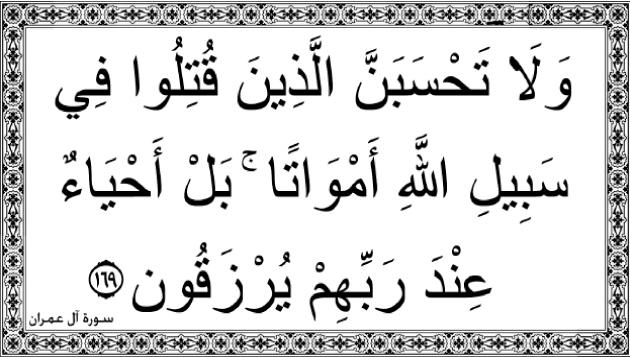 وَلَا تَحْسَبَنَّ الَّذِينَ قُتِلُوا فِي
سَبِيلِ اللَّهِ أَمْوَاتًا ۚ بَلْ أَحْيَاءٌ
عِنْدَ رَبِّهِمْ يُرْزَقُون ١٦٩
سورة آل عمران